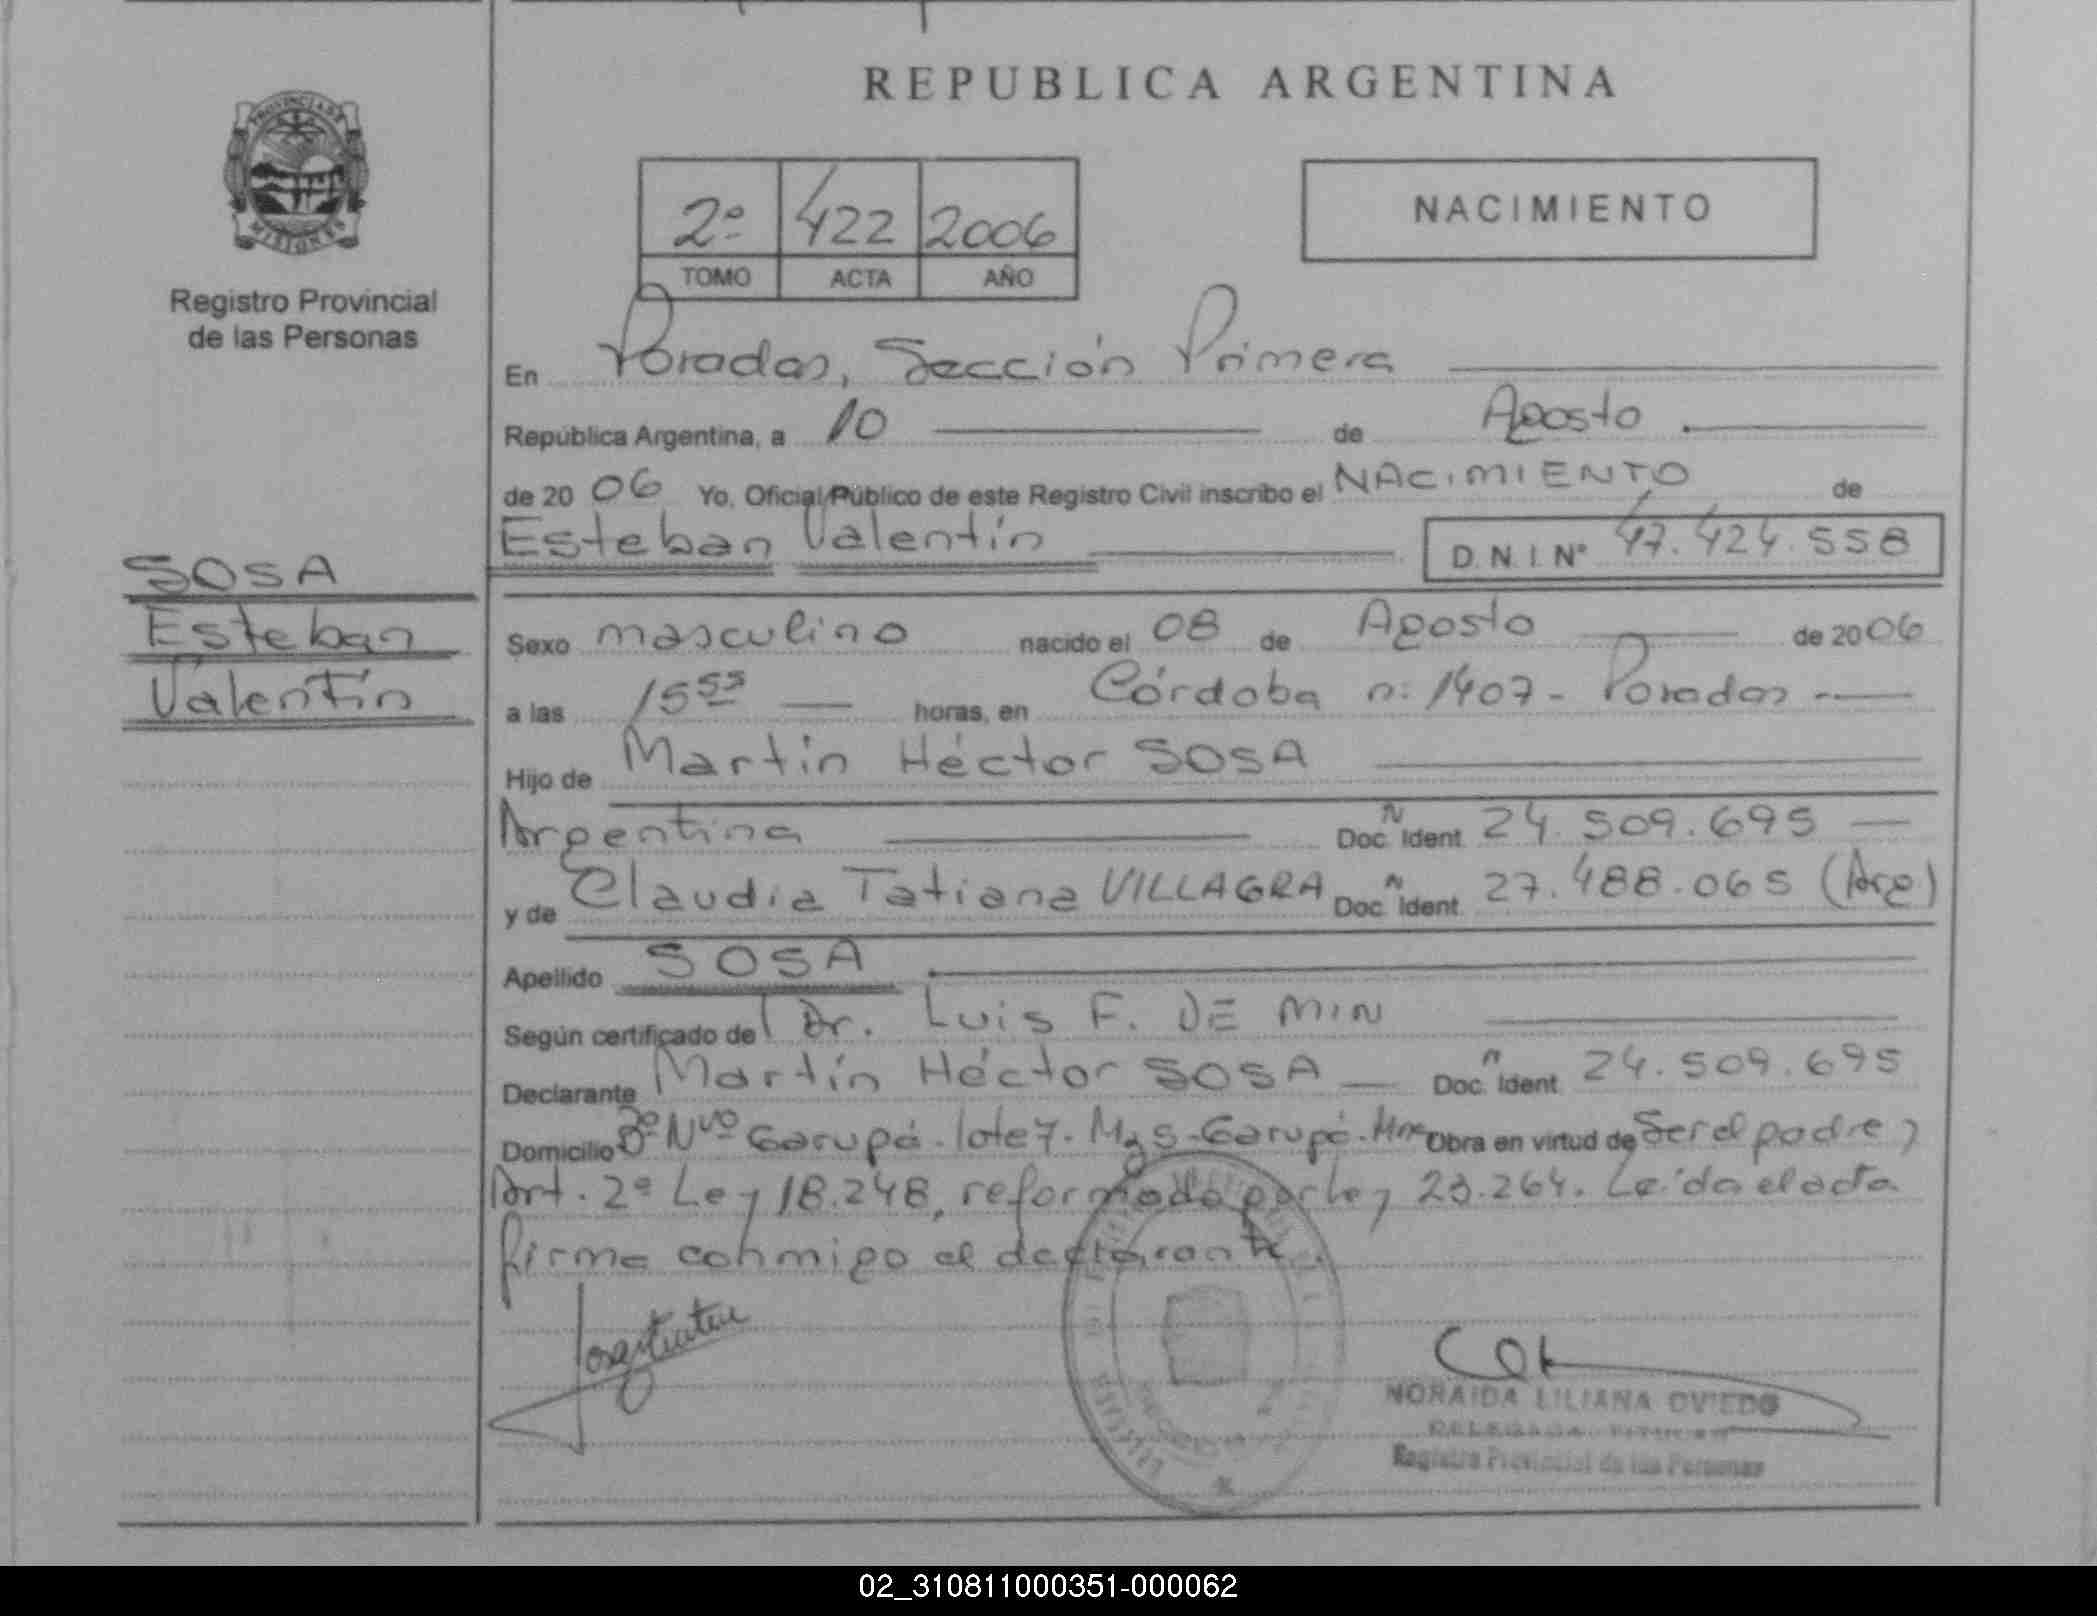 PROVINCIA DE
MISIONES
Registro Provincial
de las Personas
SOSA
Esteban
Valentín
REPUBLICA ARGENTINA
2º 422 2006
TOMO ACTA AÑO
NACIMIENTO
En Posadas, Sección Primera
República Argentina, a 10 de Agosto
de 20 06 Yo, Oficial Público de este Registro Civil inscribo el NACIMIENTO de
Esteban Valentín D.N.I. Nº 47.424.558
Sexo masculino nacido el 08 de Agosto de 2006
a las 15⁵⁵ horas, en Córdoba nº 1407 - Posadas
Hijo de Martín Héctor SOSA
Argentina Doc. Ident. 24.509.695
y de Claudia Tatiana VILLAGRA Doc. Ident. 27.488.065 (Arg)
Apellido SOSA
Según certificado de Dr. Luis F. DE MIN
Declarante Martín Héctor SOSA Doc. Ident. 24.509.695
Domicilio Bº Nvo Garupá. lote 7. Mz 5 - Garupá. Mnes Obra en virtud de Ser el padre y
Art. 2º Ley 18.248, reformado por ley 23.264. Leída el acta
firma conmigo el declarante.
NORAIDA LILIANA OVIEDO
DELEGADA TITULAR
Registro Provincial de las Personas
02_310811000351-000062